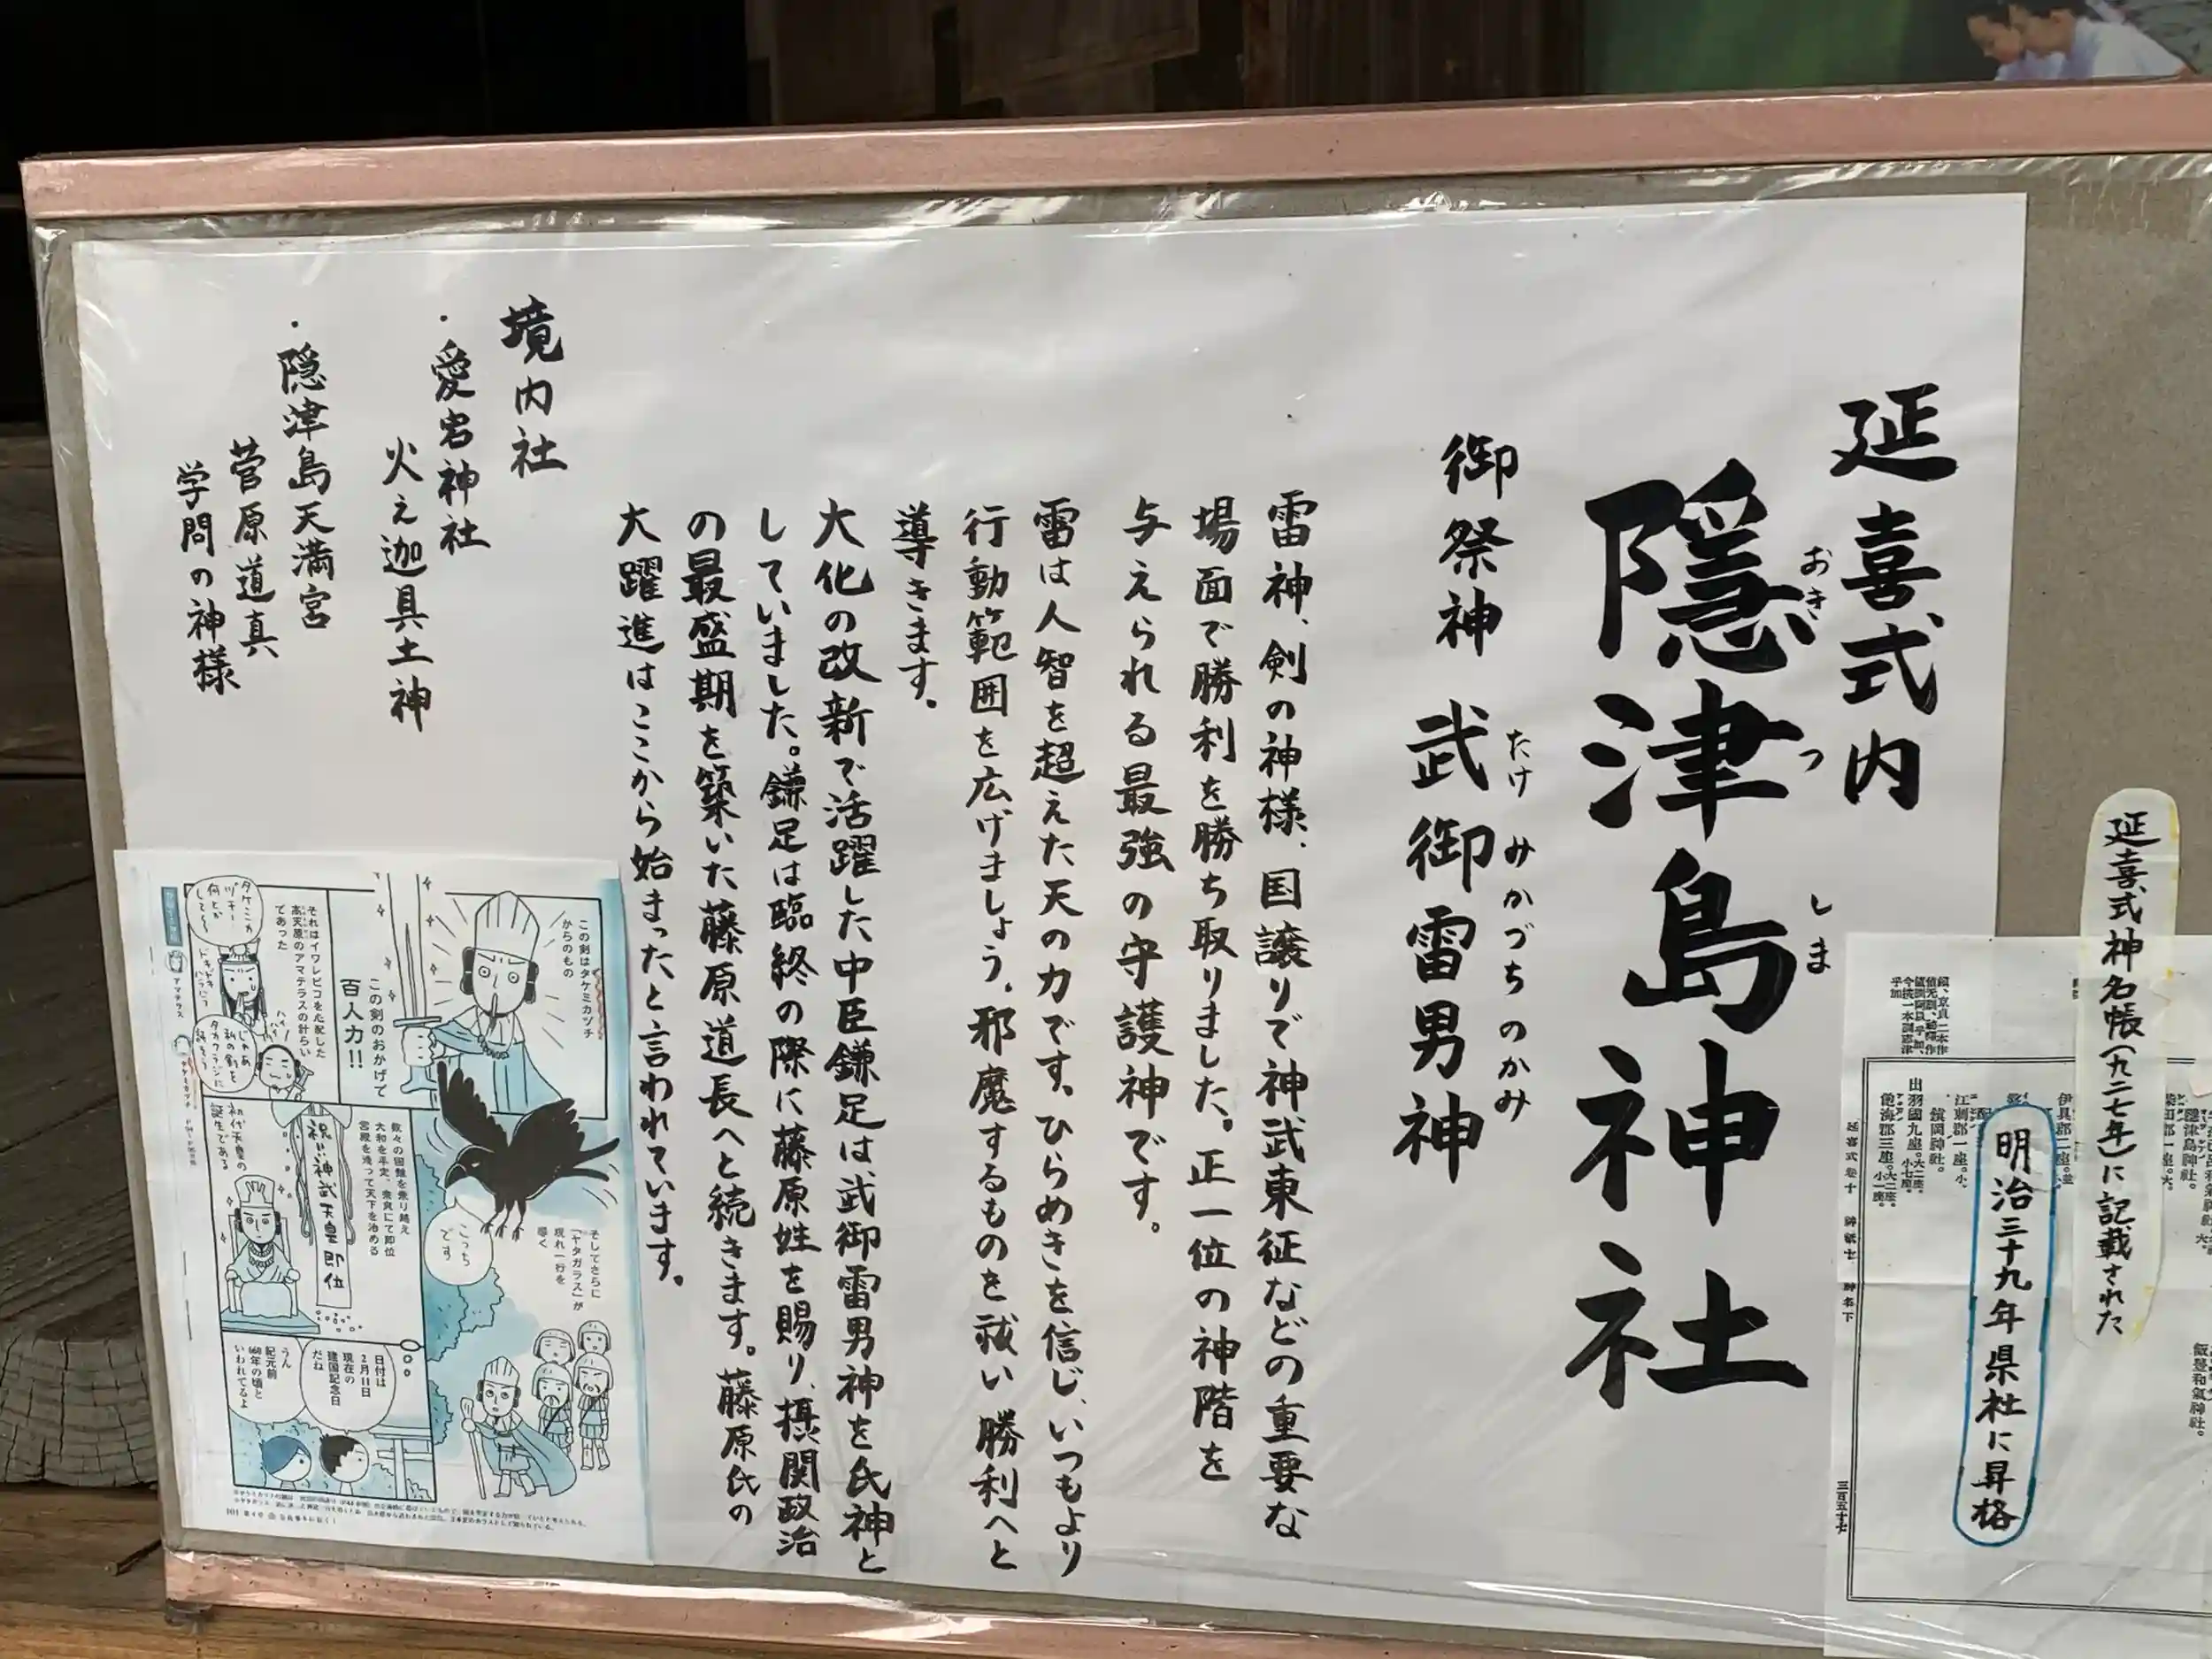 延喜式神名帳(九二七年)に記載された
明治三十九年県社に昇格
延喜式内
隠津島神社
おき つ しま
御祭神 武御雷男神
たけ みかづちのかみ
雷神、剣の神様、国譲りで神武東征などの重要な
場面で勝利を勝ち取りました。正一位の神階を
与えられる最強の守護神です。
雷は人智を超えた天の力です、ひらめきを信じ、いつもより
行動範囲を広げましょう、邪魔するものを祓い勝利へと
導きます。
大化の改新で活躍した中臣鎌足は、武御雷男神を氏神と
していました。鎌足は臨終の際に藤原姓を賜り、摂関政治
の最盛期を築いた藤原道長へと続きます。藤原氏の
大躍進はここから始まったと言われています。
境内社
・愛宕神社
火之迦具土神
・隠津島天満宮
菅原道真
学問の神様
この剣はタケミカヅチ
からのもの
この剣のおかげで
百人力!!
それはイワレビコを心配した
高天原のアマテラスの計らい
であった
タケミカ
ヅチー
何とか
して〜
じゃあ
私の剣を
タカクラジに
託そう
アマテラス
タケミカヅチ
そしてさらに
「ヤタガラス」が
現れ一行を
導く
こっち
です
数々の困難を乗り越え
大和を平定、奈良にて即位
宮殿を造って天下を治める
祝い神武天皇即位
初代天皇の
誕生である
日付は
2月11日
現在の
建国記念日
だね
うん
紀元前
660年の頃と
いわれてるよ
江刺郡一座。小。
鎮岡神社。
出羽國九座。大二座。小七座。
飽海郡三座。大二座。小一座。
延喜式卷十 神祇十 神名下
三百五十七